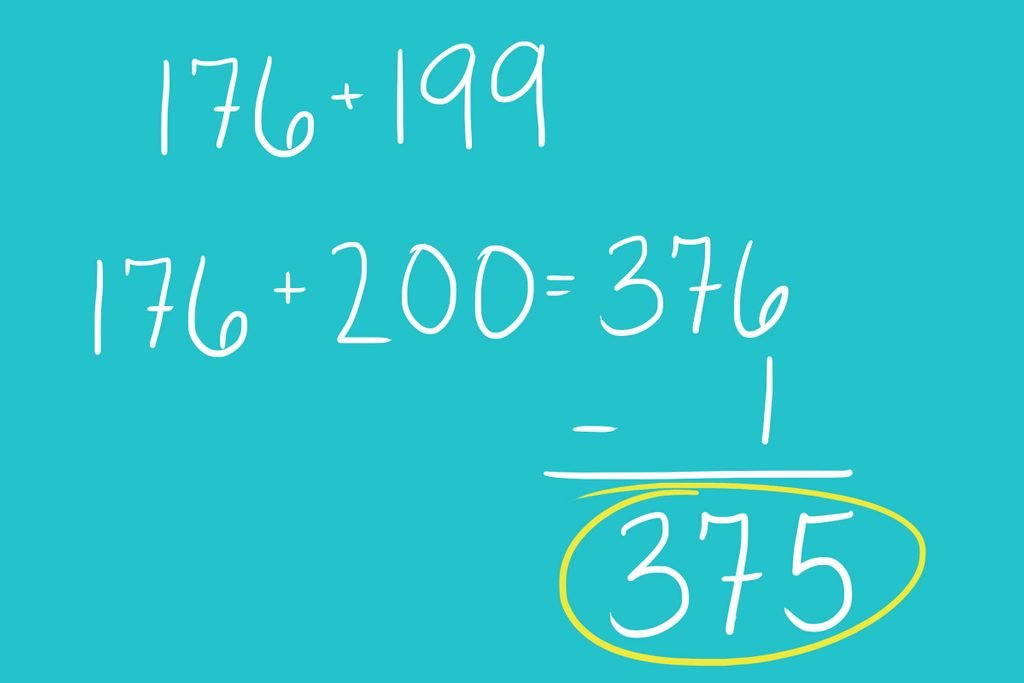 176 + 199
176 + 200 = 376
- 1
375